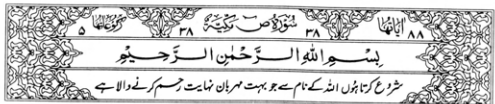 اٰیَاتُهَا ٨٨ ٣٨ سُوْرَةُ صٓ مَكِّيَّةٌ ٣٨ رُكُوْعَاتُهَا ٥
بِسْمِ اللّٰهِ الرَّحْمٰنِ الرَّحِیْمِ
شروع کرتا ہوں اللہ کے نام سے جو بہت مہربان نہایت رحم کرنے والا ہے